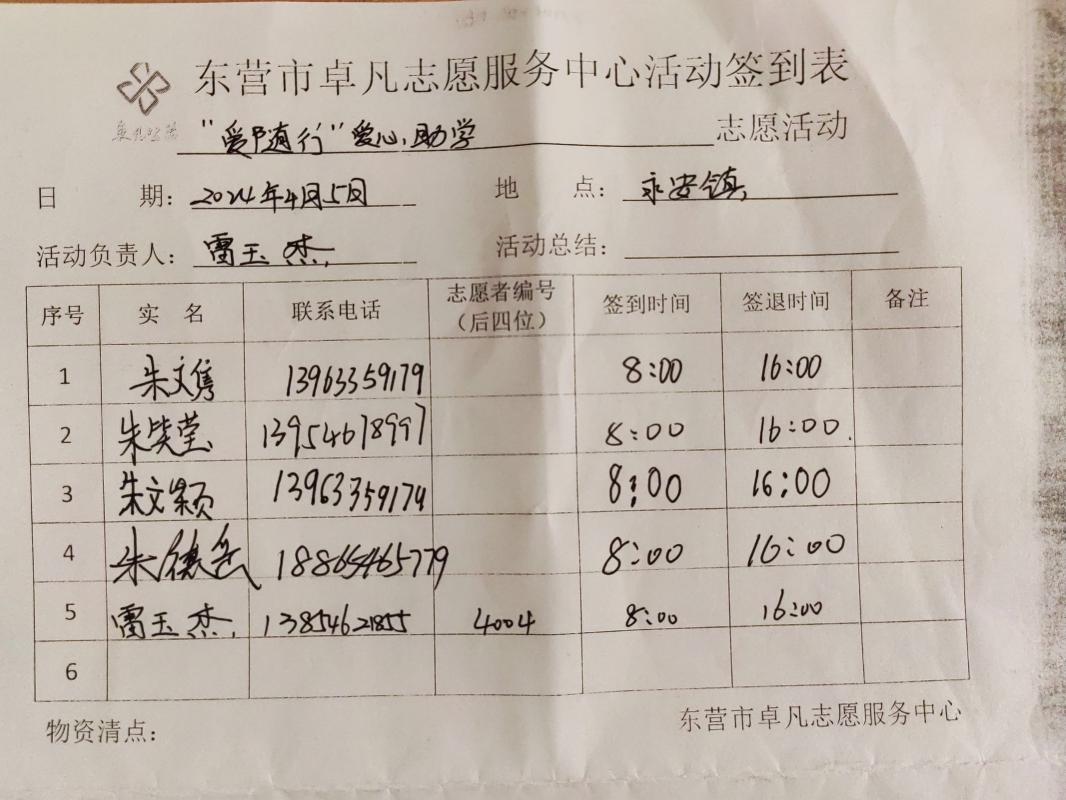 东营市卓凡志愿服务中心活动签到表
"爱随行"爱心助学 志愿活动
日 期: 2024年4月5日 地 点: 永安镇
活动负责人: 雷玉杰 活动总结:
序号 实 名 联系电话 志愿者编号（后四位） 签到时间 签退时间 备注
1 朱文隽 13963359179 8:00 16:00
2 朱荣莹 13954678997 8:00 16:00.
3 朱文颖 13963359174 8:00 16:00
4 朱德岳 18865465779 8:00 16:00
5 雷玉杰 13854621855 4004 8:00 16:00
6
物资清点: 东营市卓凡志愿服务中心